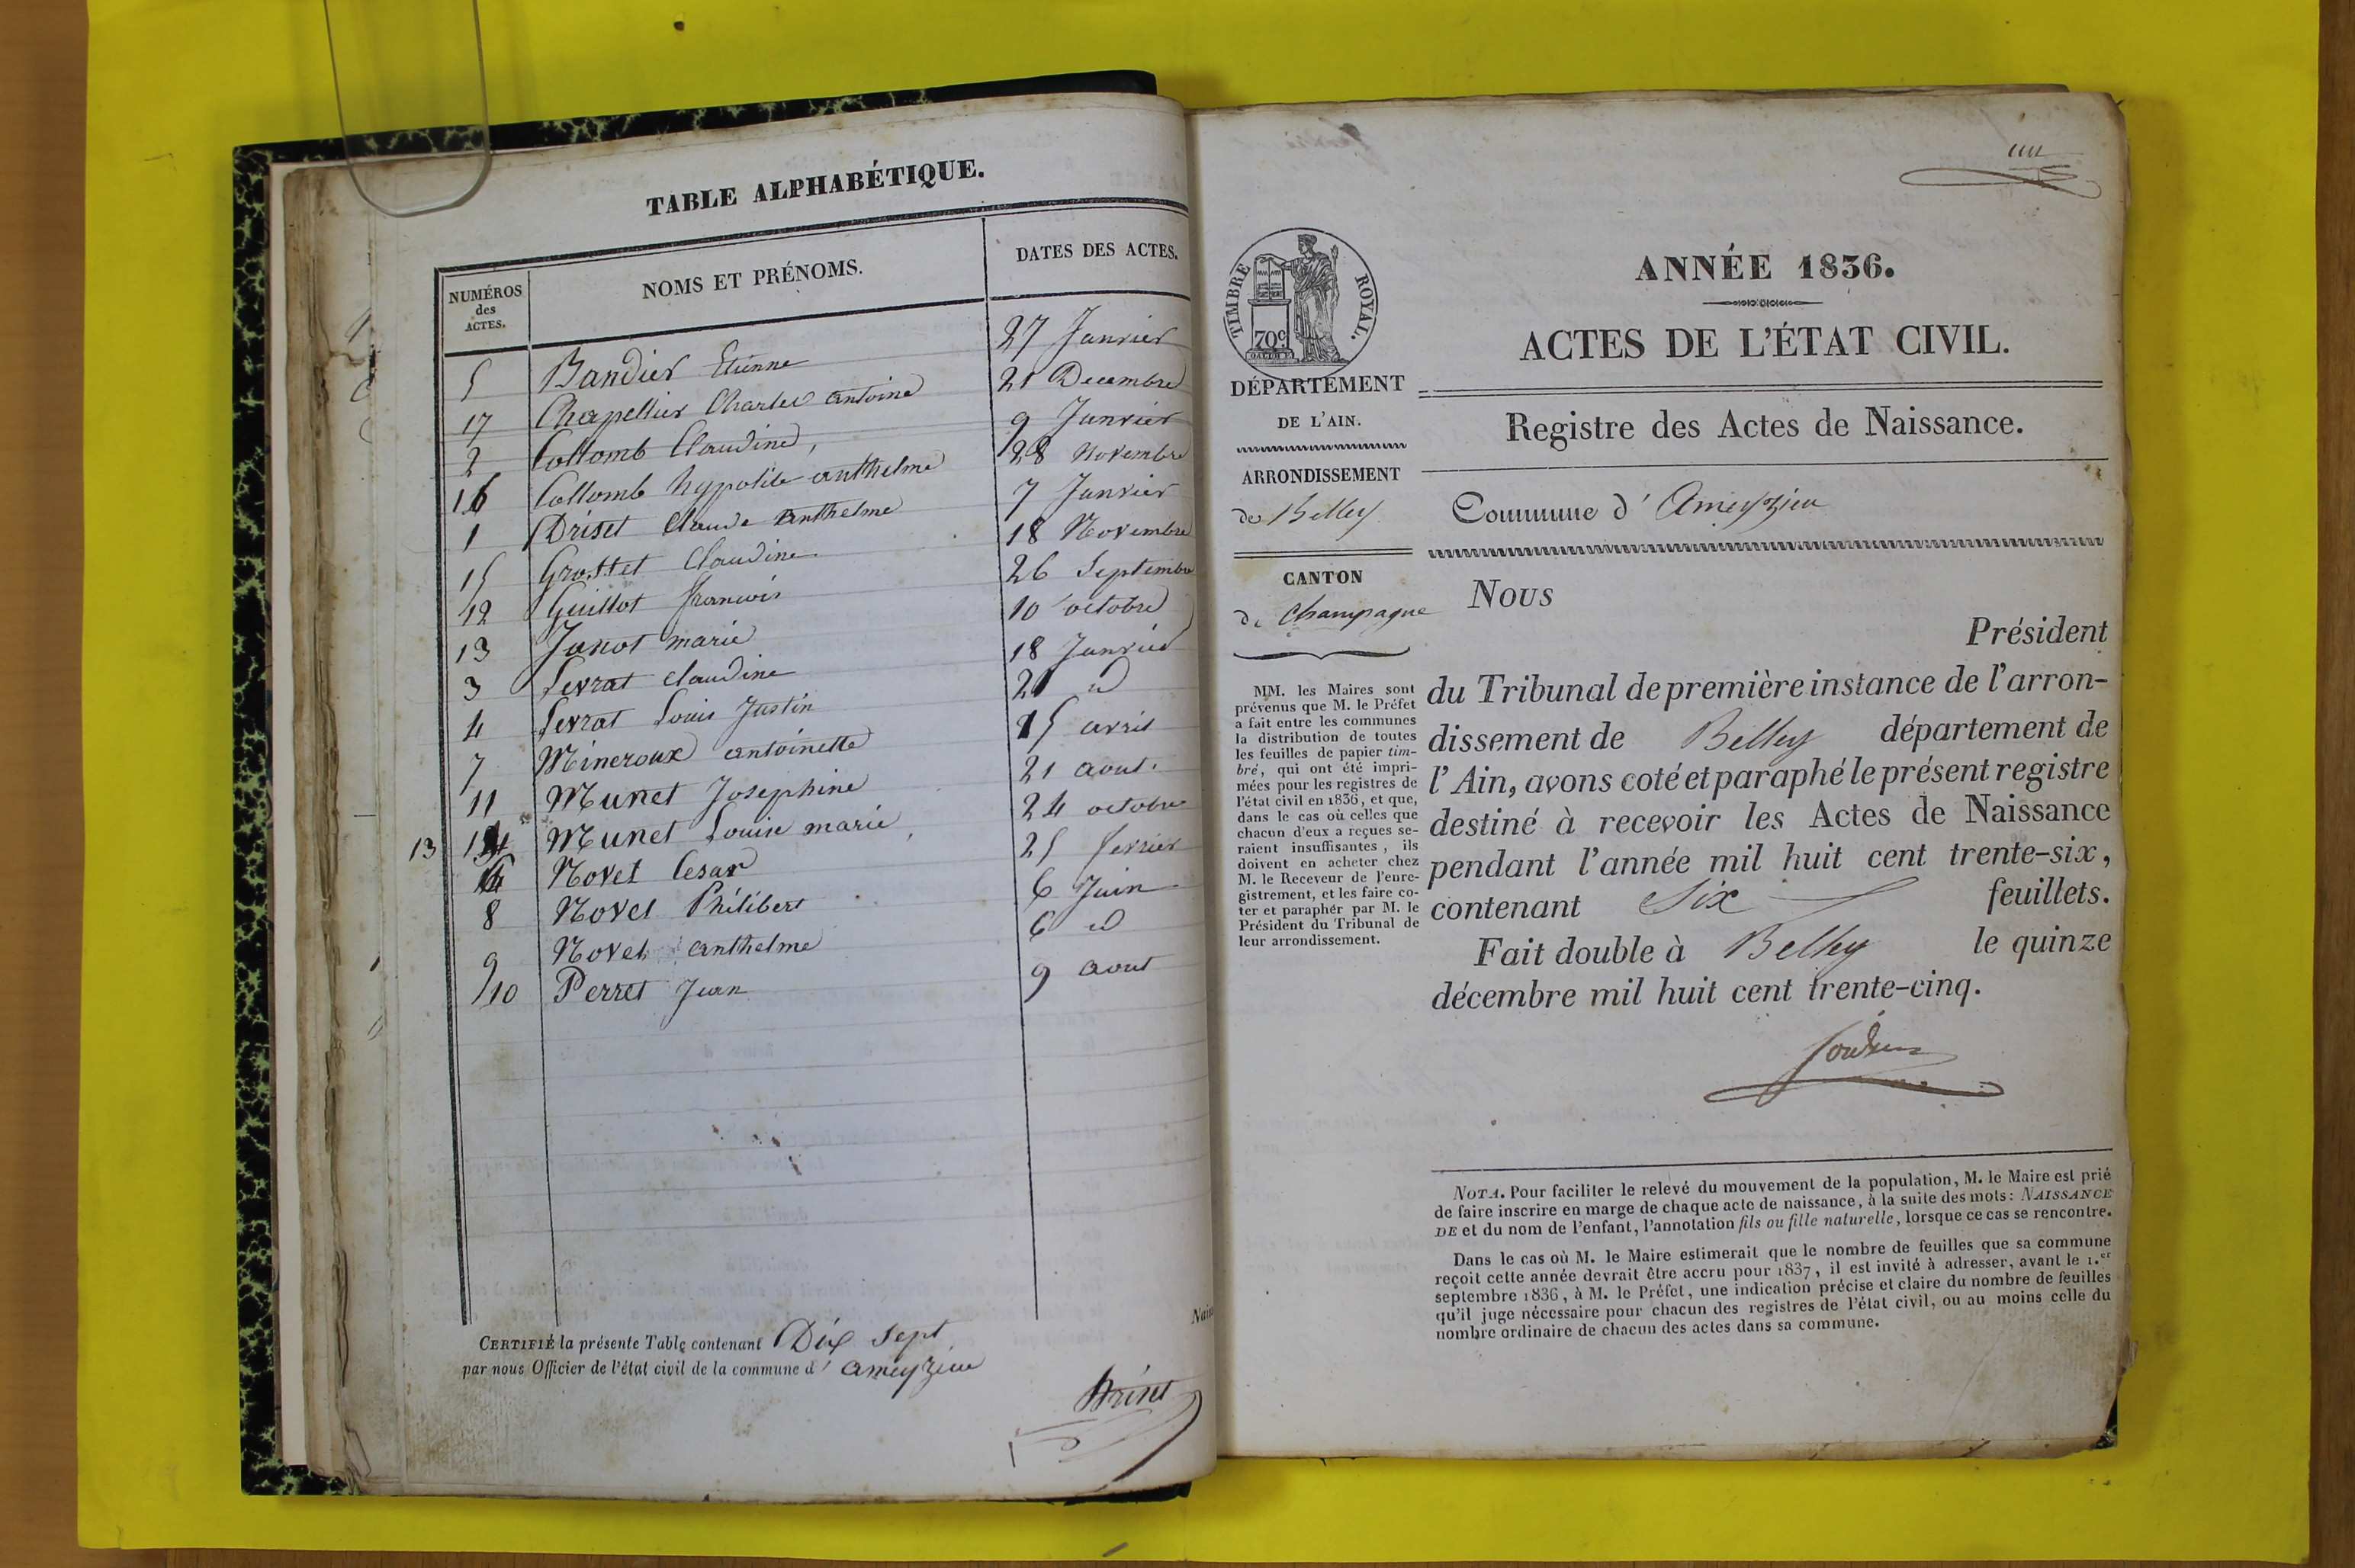 TABLE ALPHABÉTIQUE.
NUMÉROS des ACTES. NOMS ET PRÉNOMS. DATES DES ACTES.
5 Bandier Etienne 27 Janvier
17 Chapellier Charles antoine 21 Decembre
2 Collomb Claudine, 9 Janvier
16 Collomb hypolite anthelme 28 Novembre
1 Driset Claude Anthelme 7 Janvier
15 Grottet Claudine 18 Novembre
12 Guillot francois 26 Septembre
13 Janot marie 10 octobre
3 Levrat claudine 18 Janvier
4 Levrat Louis Justin 21 id
7 Mineroux antoinette 15 avril
11 Munet Josephine 21 aout.
13 14 Munet Louise marie, 24 octobre
Novet Cesar 25 fevrier
8 Novel Philibert 6 Juin
9 Novel anthelme 6 id
10 Perret Jean 9 aout
CERTIFIÉ la présente Table contenant Dix sept
par nous Officier de l'état civil de la commune d' ameyzieu
Driset
un
TIMBRE ROYAL.
70c
DÉPARTEMENT
DE L'AIN.
ARRONDISSEMENT
de Belley
CANTON
de Champagne
MM. les Maires sont
prévenus que M. le Préfet
a fait entre les communes
la distribution de toutes
les feuilles de papier tim-
bré, qui ont été impri-
mées pour les registres de
l'état civil en 1836, et que,
dans le cas où celles que
chacun d'eux a reçues se-
raient insuffisantes, ils
doivent en acheter chez
M. le Receveur de l'enre-
gistrement, et les faire co-
ter et parapher par M. le
Président du Tribunal de
leur arrondissement.
ANNÉE 1836.
ACTES DE L'ÉTAT CIVIL.
Registre des Actes de Naissance.
Commune d' Ameyzieu
Nous
Président
du Tribunal de première instance de l'arron-
dissement de Belley département de
l'Ain, avons coté et paraphé le présent registre
destiné à recevoir les Actes de Naissance
pendant l'année mil huit cent trente-six,
contenant Six feuillets.
Fait double à Belley le quinze
décembre mil huit cent trente-cinq.
NOTA. Pour faciliter le relevé du mouvement de la population, M. le Maire est prié
de faire inscrire en marge de chaque acte de naissance, à la suite des mots: NAISSANCE
DE et du nom de l'enfant, l'annotation fils ou fille naturelle, lorsque ce cas se rencontre.
Dans le cas où M. le Maire estimerait que le nombre de feuilles que sa commune
reçoit cette année devrait être accru pour 1837, il est invité à adresser, avant le 1.er
septembre 1836, à M. le Préfet, une indication précise et claire du nombre de feuilles
qu'il juge nécessaire pour chacun des registres de l'état civil, ou au moins celle du
nombre ordinaire de chacun des actes dans sa commune.